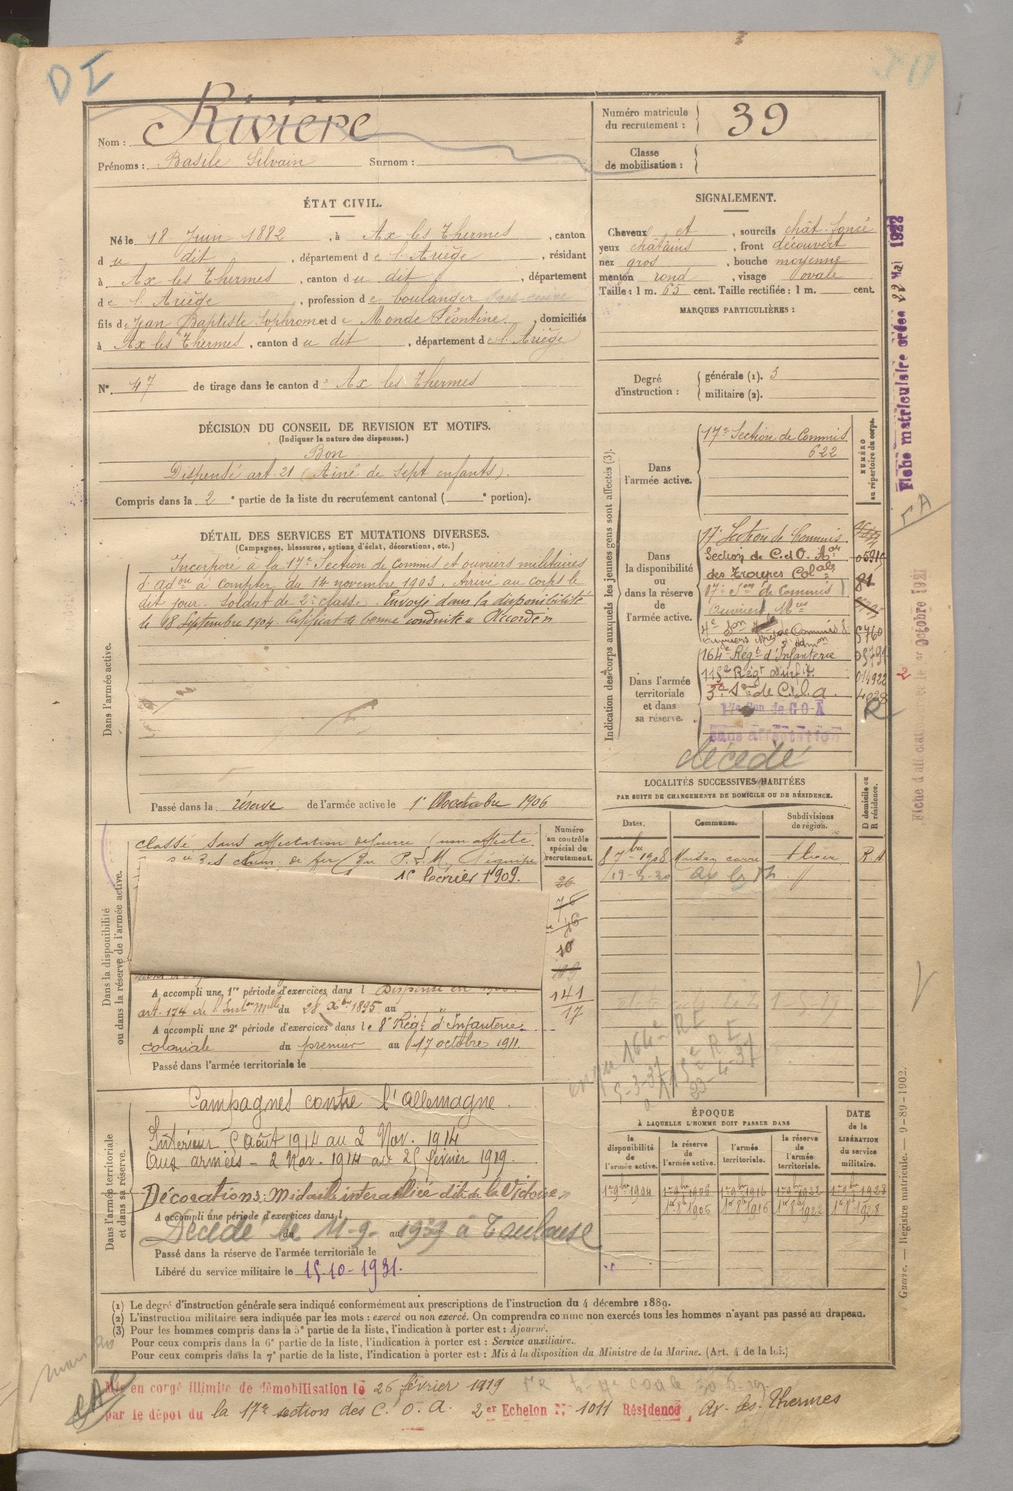 DI
Nom : Rivière
Prénoms : Basile Silvain Surnom :
Numéro matricule du recrutement : 39
Classe de mobilisation :
ÉTAT CIVIL.
Né le 18 Juin 1882, à Ax les Thermes, canton
du dit, département de l'Ariège, résidant
à Ax les Thermes, canton du dit, département
de l'Ariège, profession de boulanger
fils de Jean Baptiste Sophrom et de Monde Léontine, domiciliés
à Ax les Thermes, canton du dit, département de l'Ariège
N° 47 de tirage dans le canton d' Ax les Thermes
SIGNALEMENT.
Cheveux et, sourcils chât. foncé
yeux châtains, front découvert
nez gros, bouche moyenne
menton rond, visage ovale
Taille : 1 m. 65 cent. Taille rectifiée : 1 m. cent.
MARQUES PARTICULIÈRES :
Degré d'instruction : générale (1). 3
militaire (2).
DÉCISION DU CONSEIL DE REVISION ET MOTIFS.
(Indiquer la nature des dispenses.)
Bon
Dispensé art. 21 (Ainé de sept enfants).
Compris dans la 2e partie de la liste du recrutement cantonal ( e portion).
DÉTAIL DES SERVICES ET MUTATIONS DIVERSES.
(Campagnes, blessures, actions d'éclat, décorations, etc.)
Dans l'armée active.
Incorporé à la 17e Section de Commis et ouvriers militaires
d'adon à compter du 14 novembre 1903. Arrivé au corps le
dit jour. Soldat de 2e classe. Envoyé dans la disponibilité
le 18 Septembre 1904. Certificat de bonne conduite « Accordé »
Passé dans la réserve de l'armée active le 1er Octobre 1906
Indication des corps auxquels les jeunes gens sont affectés (3).
NUMÉRO au répertoire du corps.
Dans l'armée active.
17e Section de Commis
622
Dans la disponibilité ou dans la réserve de l'armée active.
17e Section de Commis
Section de C.d.O. Aon
des Troupes Coloales
81
17e Son de Commis
Ouvriers Mres
5760
164e Régt d'Infanterie
115e Régt d'Inf.
014922
Dans l'armée territoriale et dans sa réserve.
3e Son de C.d.a.
4028
17e Son de C O A
R
Sans affectation
décédé
Fiche matriculaire créée 22 Mai 1922
Fiche d'affectat 1er Octobre 1921
LOCALITÉS SUCCESSIVES HABITÉES
PAR SUITE DE CHANGEMENTS DE DOMICILE OU DE RÉSIDENCE.
Dates. Communes. Subdivisions de région. D domicile ou R résidence.
8 7bre 1908 Maison carrée Alger R
19-3-20 Ax les Th
Dans la disponibilité ou dans la réserve de l'armée active.
Numéro au contrôle spécial du recrutement.
classé sans affectation défense non affecté
1er février 1909.
26
76
10
141
17
A accompli une 1re période d'exercices dans l Dispensé en
art. 174 de l'Inston Mlle du 28 Xbre 1895 au
A accompli une 2e période d'exercices dans le 8e Régt d'Infanterie
coloniale du premier au 17 octobre 1911.
Passé dans l'armée territoriale le
164e R I
5-3-37
115e R I
23-4-37
Dans l'armée territoriale et dans sa réserve.
Campagnes contre l'allemagne.
Intérieur 5 août 1914 au 2 Nov. 1914
Aux armées - 2 Nov. 1914 au 25 février 1919.
Décorations : Médaille interalliée dite de la Victoire »
A accompli une période d'exercices dans l
du au
Décédé le 11-9-1939 à Toulouse
Passé dans la réserve de l'armée territoriale le
Libéré du service militaire le 15-10-1931.
ÉPOQUE
À LAQUELLE L'HOMME DOIT PASSER DANS
DATE de la LIBÉRATION du service militaire.
la disponibilité de l'armée active. la réserve de l'armée active. l'armée territoriale. la réserve de l'armée territoriale.
1er 9bre 1904 1er 9bre 1906 1er 9bre 1916 1er 9bre 1922 1er 9bre 1928
1er 8bre 1906 1er 8bre 1916 1er 8bre 1922 1er 8bre 1928
Guerre. — Registre matricule. — 9-89-1902.
(1) Le degré d'instruction générale sera indiqué conformément aux prescriptions de l'instruction du 4 décembre 1889.
(2) L'instruction militaire sera indiquée par les mots : exercé ou non exercé. On comprendra comme non exercés tous les hommes n'ayant pas passé au drapeau.
(3) Pour les hommes compris dans la 5e partie de la liste, l'indication à porter est : Ajourné.
Pour ceux compris dans la 6e partie de la liste, l'indication à porter est : Service auxiliaire.
Pour ceux compris dans la 7e partie de la liste, l'indication à porter est : Mis à la disposition du Ministre de la Marine. (Art. 4 de la loi.)
Mis en congé illimité de démobilisation le 26 février 1919
par le dépot du la 17e section des C.O.A. 2er Echelon N° 1011 Résidence Ax-les-Thermes